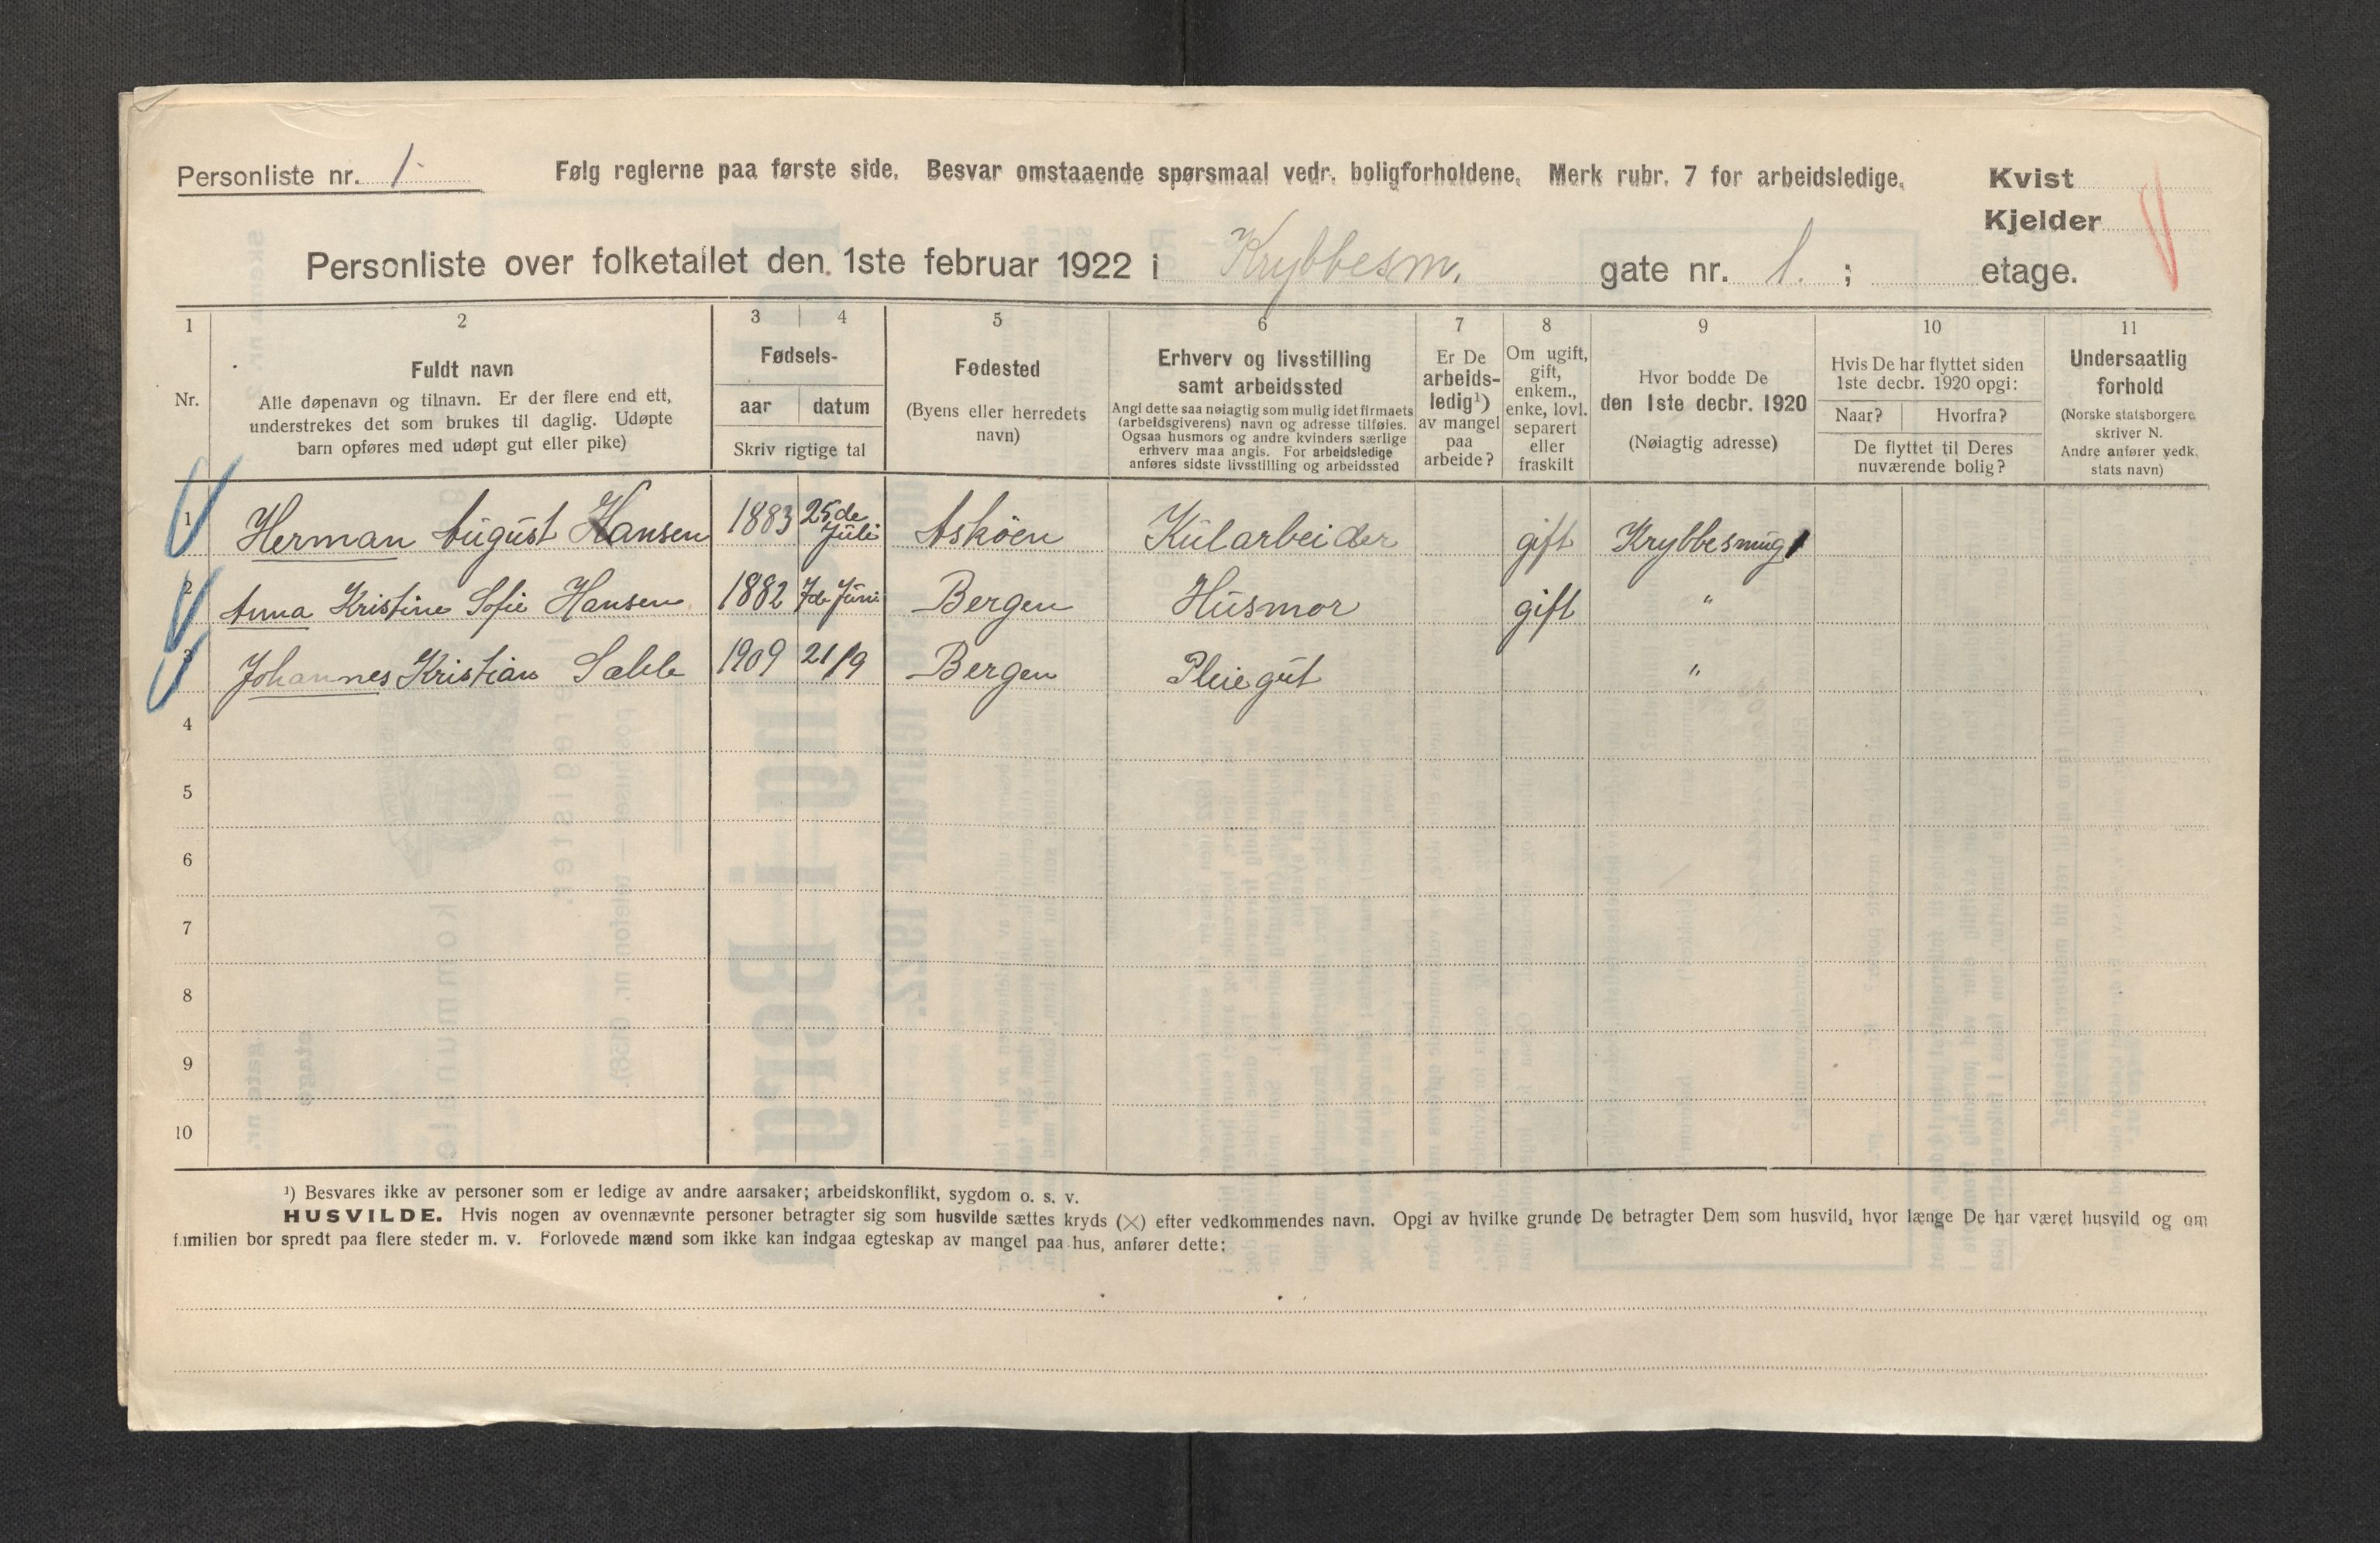 Personliste nr. 1. Følg reglerne paa første side. Besvar omstaaende spørsmaal vedr. boligforholdene. Merk rubr. 7 for arbeidsledige. Kvist
Kjelder
Personliste over folketallet den 1ste februar 1922 i Krybbesm. gate nr. 1. ; etage.
1 2 3 4 5 6 7 8 9 10 11
Nr.
Fuldt navn
Alle døpenavn og tilnavn. Er der flere end ett,
understrekes det som brukes til daglig. Udøpte
barn opføres med udøpt gut eller pike)
Fødsels-
aar datum
Skriv rigtige tal
Fødested
(Byens eller herredets
navn)
Erhverv og livsstilling
samt arbeidssted
Angi dette saa nøiagtig som mulig idet firmaets
(arbeidsgiverens) navn og adresse tilføies.
Ogsaa husmors og andre kvinders særlige
erhverv maa angis. For arbeidsledige
anføres sidste livsstilling og arbeidssted
Er De
arbeids-
ledig¹)
av mangel
paa
arbeide?
Om ugift,
gift,
enkem.,
enke, lovl.
separert
eller
fraskilt
Hvor bodde De
den 1ste decbr. 1920
(Nøiagtig adresse)
Hvis De har flyttet siden
1ste decbr. 1920 opgi:
Naar? Hvorfra?
De flyttet til Deres
nuværende bolig?
Undersaatlig
forhold
(Norske statsborgere
skriver N.
Andre anfører vedk.
stats navn)
1 Herman August Hansen 1883 25de Juli Askøen Kularbeider gift Krybbesmug 1
2 Anna Kristine Sofie Hansen 1882 7de Juni Bergen Husmor gift "
3 Johannes Kristian 1909 21/9 Bergen Pleiegut "
4
5
6
7
8
9
10
¹) Besvares ikke av personer som er ledige av andre aarsaker; arbeidskonflikt, sygdom o. s. v.
HUSVILDE. Hvis nogen av ovennævnte personer betragter sig som husvilde sættes kryds (×) efter vedkommendes navn. Opgi av hvilke grunde De betragter Dem som husvild, hvor længe De har været husvild og om
familien bor spredt paa flere steder m. v. Forlovede mænd som ikke kan indgaa egteskap av mangel paa hus, anfører dette: